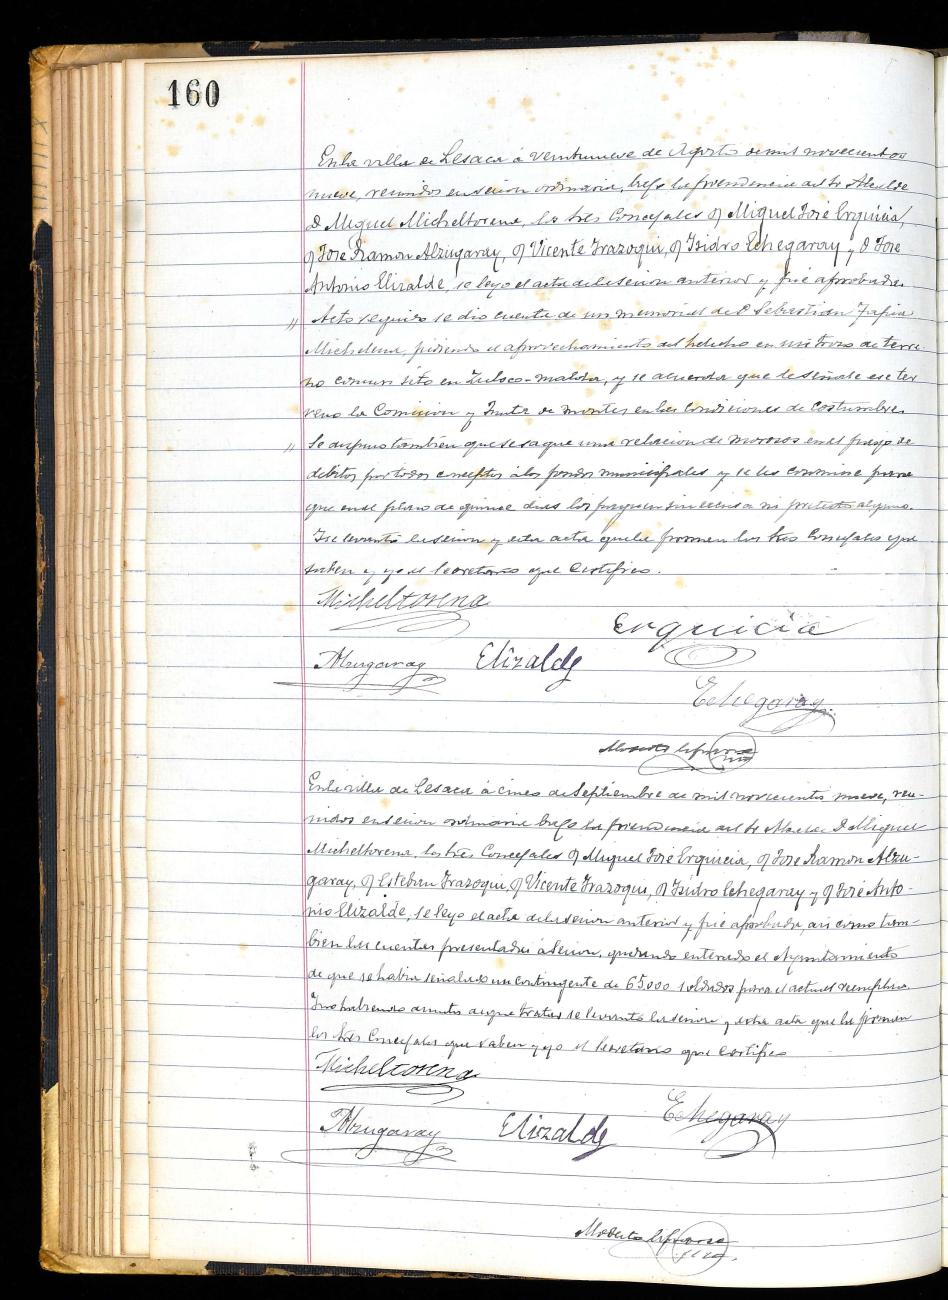 160
En la villa de Lesaca á veintinueve de Agosto de mil novecientos
nueve, reunidos en sesion ordinaria, bajo la presidencia del Sr Alcalde
D Miguel Micheltorena, los Sres Concejales D Miguel José Erquicia,
D José Ramon Alzugaray, D Vicente Irazoqui, D Isidro Echegaray y D José
Antonio Elizalde, se leyo el acta de la sesion anterior y fué aprobada.
" Acto seguido se dio cuenta de un memorial de D Sebastian Tapia
Michelena, pidiendo el aprovechamiento del helecho en un trozo de terre-
no comun sito en y se acuerda que le señale ese ter
reno la Comision y Junta de montes en las condiciones de costumbre.
" Se dispuso tambien que se saque una relacion de morosos en el pago de
debitos por todos conceptos á los fondos municipales y se les conmine para
que en el plazo de quince dias los paguen sin escusa ni pretesto alguno.
Y se levantó la sesion y esta acta que la firman los Sres Concejales que
saben y yo el Secretario que Certifico.
Micheltorena
Erquicia
Alzugaray Elizalde
Echegaray
Modesto
En la villa de Lesaca á cinco de Septiembre de mil novecientos nueve, reu-
nidos en sesion ordinaria bajo la presidencia del Sr Alcalde D Miguel
Micheltorena, los Sres Concejales D Miguel José Erquicia, D José Ramon Alzu-
garay, D Esteban Irazoqui, D Vicente Irazoqui, D Isidro Echegaray y D José Anto-
nio Elizalde, se leyo el acta de la sesion anterior y fué aprobada, asi como tam-
bien las cuentas presentadas á sesion, quedando enterado el Ayuntamiento
de que se habia señalado un contingente de 65.000 soldados para el actual reemplazo.
Y no habiendo asuntos de que tratar se levantó la sesion y esta acta que la firman
los Sres Concejales que saben y yo el Secretario que Certifico
Micheltorena
Echegaray
Alzugaray Elizalde
Modesto